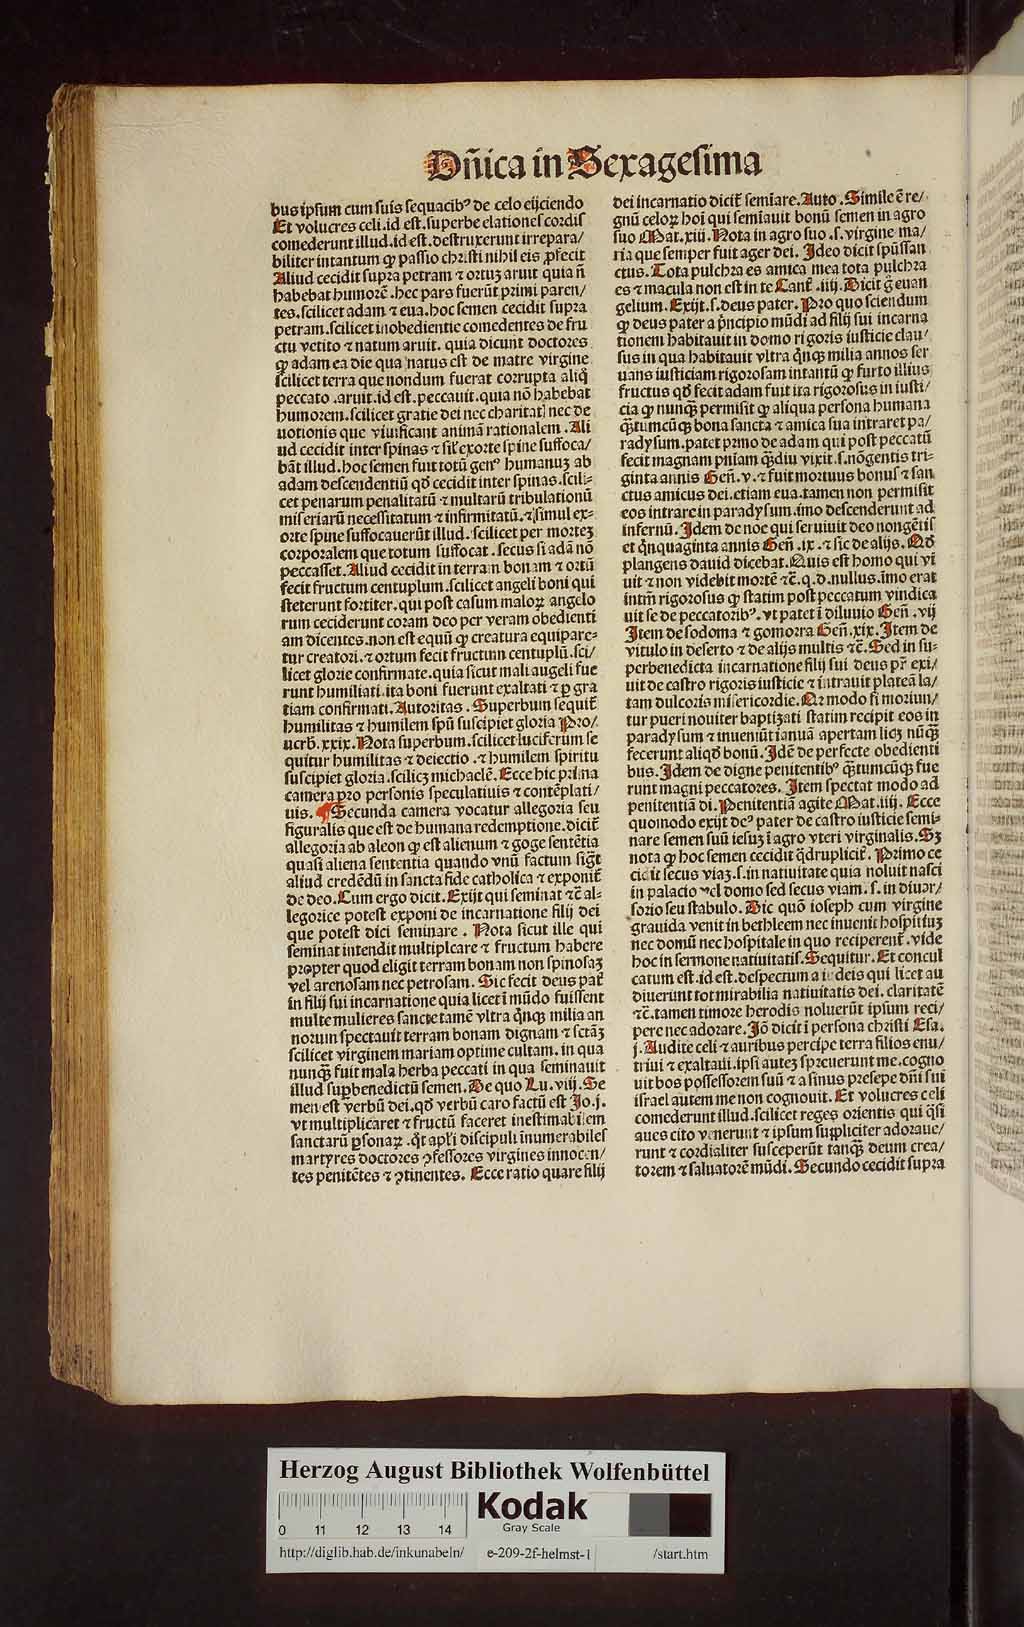 Dñica in Sexagesima
bus ipsum cum suis sequacibꝰ de celo eijciendo
Et volucres celi .id est. superbe elationes cordis
comederunt illud .id est. destruxerunt irrepara/
biliter intantum ꝙ passio christi nihil eis ꝓfecit
Aliud cecidit supra petram ⁊ ortuꝫ aruit quia ñ
habebat humorē .hec pars fuerūt primi paren/
tes .scilicet adam ⁊ eua. hoc semen cecidit supra
petram .scilicet inobedientie comedentes de fru
ctu vetito ⁊ natum aruit. quia dicunt doctores
ꝙ adam ea die qua natus est de matre virgine
scilicet terra que nondum fuerat corrupta aliq̊
peccato .aruit .id est. peccauit .quia nō habebat
humorem .scilicet gratie dei nec charitatꝭ nec de
uotionis que viuificant animā rationalem. Ali
ud cecidit inter spinas ⁊ sil exorte spine suffoca/
bāt illud. hoc semen fuit totū genꝰ humanuꝫ ab
adam descendentiū qd̄ cecidit inter spinas .scili-
cet penarum penalitatū ⁊ multarū tribulationū
miseriarū necessitatum ⁊ infirmitatū. ⁊ simul ex-
orte spine suffocauerūt illud. scilicet per morteꝫ
corporalem que totum suffocat .secus si adā nō
peccasset. Aliud cecidit in terram bonam ⁊ ortū
fecit fructum centuplum. scilicet angeli boni qui
steterunt fortiter. qui post casum maloꝝ angelo
rum ceciderunt coram deo per veram obedienti
am dicentes .non est equū ꝙ creatura equipare-
tur creatori. ⁊ ortum fecit fructum centuplū .sci/
licet glorie confirmate. quia sicut mali angeli fue
runt humiliati .ita boni fuerunt exaltati ⁊ ꝑ gra
tiam confirmati. Autoritas. Superbum sequit̄
humilitas ⁊ humilem spū suscipiet gloria Pro/
uerb̄. xxix. Nota superbum .scilicet luciferum se
quitur humilitas ⁊ deiectio. ⁊ humilem spiritu
suscipiet gloria .scilicꝫ michaelē. Ecce hic prima
camera pro personis speculatiuis ⁊ contēplati/
uis. ¶ Secunda camera vocatur allegoria seu
figuralis que est de humana redemptione .dicit̄
allegoria ab aleon ꝙ est alienum ⁊ goge sentētia
quasi aliena sententia quando vnū factum sigt̄
aliud credēdū in sancta fide catholica ⁊ exponit̄
de deo. Cum ergo dicit. Exijt qui seminat ⁊c̄ al-
legorice potest exponi de incarnatione filij dei
que potest dici seminare. Nota sicut ille qui
seminat intendit multiplcare ⁊ fructum habere
propter quod eligit terram bonam non spinosaꝫ
vel arenosam nec petrosam. Sic fecit deus pat̄
in filij sui incarnatione quia licet ī mūdo fuissent
multe mulieres sancte tamē vltra qͥnqꝫ milia an
norum spectauit terram bonam dignam ⁊ sctāꝫ
scilicet virginem mariam optime cultam. in qua
nunqꝫ̄ fuit mala herba peccati in qua seminauit
illud supbenedictū semen. De quo Lu. viij. Se
men est verbū dei. qd̄ verbū caro factū est Jo. j.
vt multiplicaret ⁊ fructū faceret inestimabilem
sanctarū ꝑsonaꝝ .q̄t apli discipuli īnumerabiles
martyres doctores ꝯfessores virgines innocen/
tes penitētes ⁊ ꝯtinentes. Ecce ratio quare filij
dei incarnatio dicit̄ semīare. Auto. Simile ē re/
gnū celoꝝ hoī qui semiauit bonū semen in agro
suo Mat. xiij. Nota in agro suo .s. virgine ma/
ria que semper fuit ager dei. Ideo dicit spūssan
ctus. Tota pulchra es amica mea tota pulchra
es ⁊ macula non est in te Cant̄. iiij. Dicit g̊ euan
gelium. Exijt .s. deus pater. Pro quo sciendum
ꝙ deus pater a pͥncipio mūdi ad filij sui incarna
tionem habitauit in domo rigoris iusticie clau/
sus in qua habitauit vltra qͥnqꝫ milia annos ser
uans iusticiam rigorosam intantū ꝙ furto illius
fructus qd̄ fecit adam fuit ita rigorosus in iusti/
cia ꝙ nunqꝫ̄ permisit ꝙ aliqua persona humana
qꝫ̄tumcūqꝫ bona sancta ⁊ amica sua intraret pa/
radysum. patet primo de adam qui post peccatū
fecit magnam pniam qꝫ̄diu vixit .s. nōgentis tri-
ginta annis Geñ. v. ⁊ fuit mortuus bonus ⁊ san
ctus amicus dei. etiam eua. tamen non permisit
eos intrare in paradysum. imo descenderunt ad
infernū. Idem de noe qui seruiuit deo nongētis
et qͥnquaginta annis Geñ. ix. ⁊ sic de alijs. Qd̄
plangens dauid dicebat. Quis est homo qui vi
uit ⁊ non videbit mortē ⁊c̄. q. d. nullus. imo erat
intm̄ rigorosus ꝙ statim post peccatum vindica
uit se de peccatoribꝰ. vt patet ī diluuio Geñ. vij
Item de sodoma ⁊ gomorra Geñ. xix. Item de
vitulo in deserto ⁊ de alijs multis ⁊c̄. Sed in su-
perbenedicta incarnatione filij sui deus pr̄ exi/
uit de castro rigoris iusticie ⁊ intrauit plateā la/
tam dulcoris misericordie. Nā modo si moriun/
tur pueri nouiter baptizati statim recipit eos in
paradysum ⁊ inueniūt ianuā apertam licꝫ nūqꝫ̄
fecerunt aliqd̄ bonū. Idē de perfecte obedienti
bus. Idem de digne penitentibꝰ qꝫ̄tumcūqꝫ fue
runt magni peccatores. Item spectat modo ad
penitentiā di. Penitentiā agite Mat. iiij. Ecce
quomodo exijt deꝰ pater de castro iusticie semi-
nare semen suū iesuꝫ ī agro vteri virginalis. Sꝫ
nota ꝙ hoc semen cecidit qd̄ruplicit̄. Primo ce
cidit secus viaꝫ .s. in natiuitate quia noluit nasci
in palacio vel domo sed secus viam .s. in diuer/
sorio seu stabulo. Dic quō ioseph cum virgine
grauida venit in bethleem nec inuenit hospitiuꝫ
nec domū nec hospitale in quo reciperent̄. vide
hoc in sermone natiuitatis. Sequitur. Et concul
catum est .id est. despectum a iudeis qui licet au
diuerunt tot mirabilia natiuitatis dei. claritatē
⁊c̄. tamen timore herodis noluerūt ipsum reci/
pere nec adorare. Jō dicit ī persona christi Esa.
j. Audite celi ⁊ auribus percipe terra filios enu/
triui ⁊ exaltaui. ipsi auteꝫ spreuerunt me. cogno
uit bos possessorem suū ⁊ asinus presepe dn̄i sui
israel autem me non cognouit. Et volucres celi
comederunt illud .scilicet reges orientis qui qͣsi
aues cito venerunt ⁊ ipsum suppliciter adoraue/
runt ⁊ cordialiter susceperūt tanqꝫ̄ deum crea/
torem ⁊ saluatorē mūdi. Secundo cecidit supra
Herzog August Bibliothek Wolfenbüttel
0 11 12 13 14
Kodak
Gray Scale
http://diglib.hab.de/inkunabeln/ e-209-2f-helmst-1 /start.htm